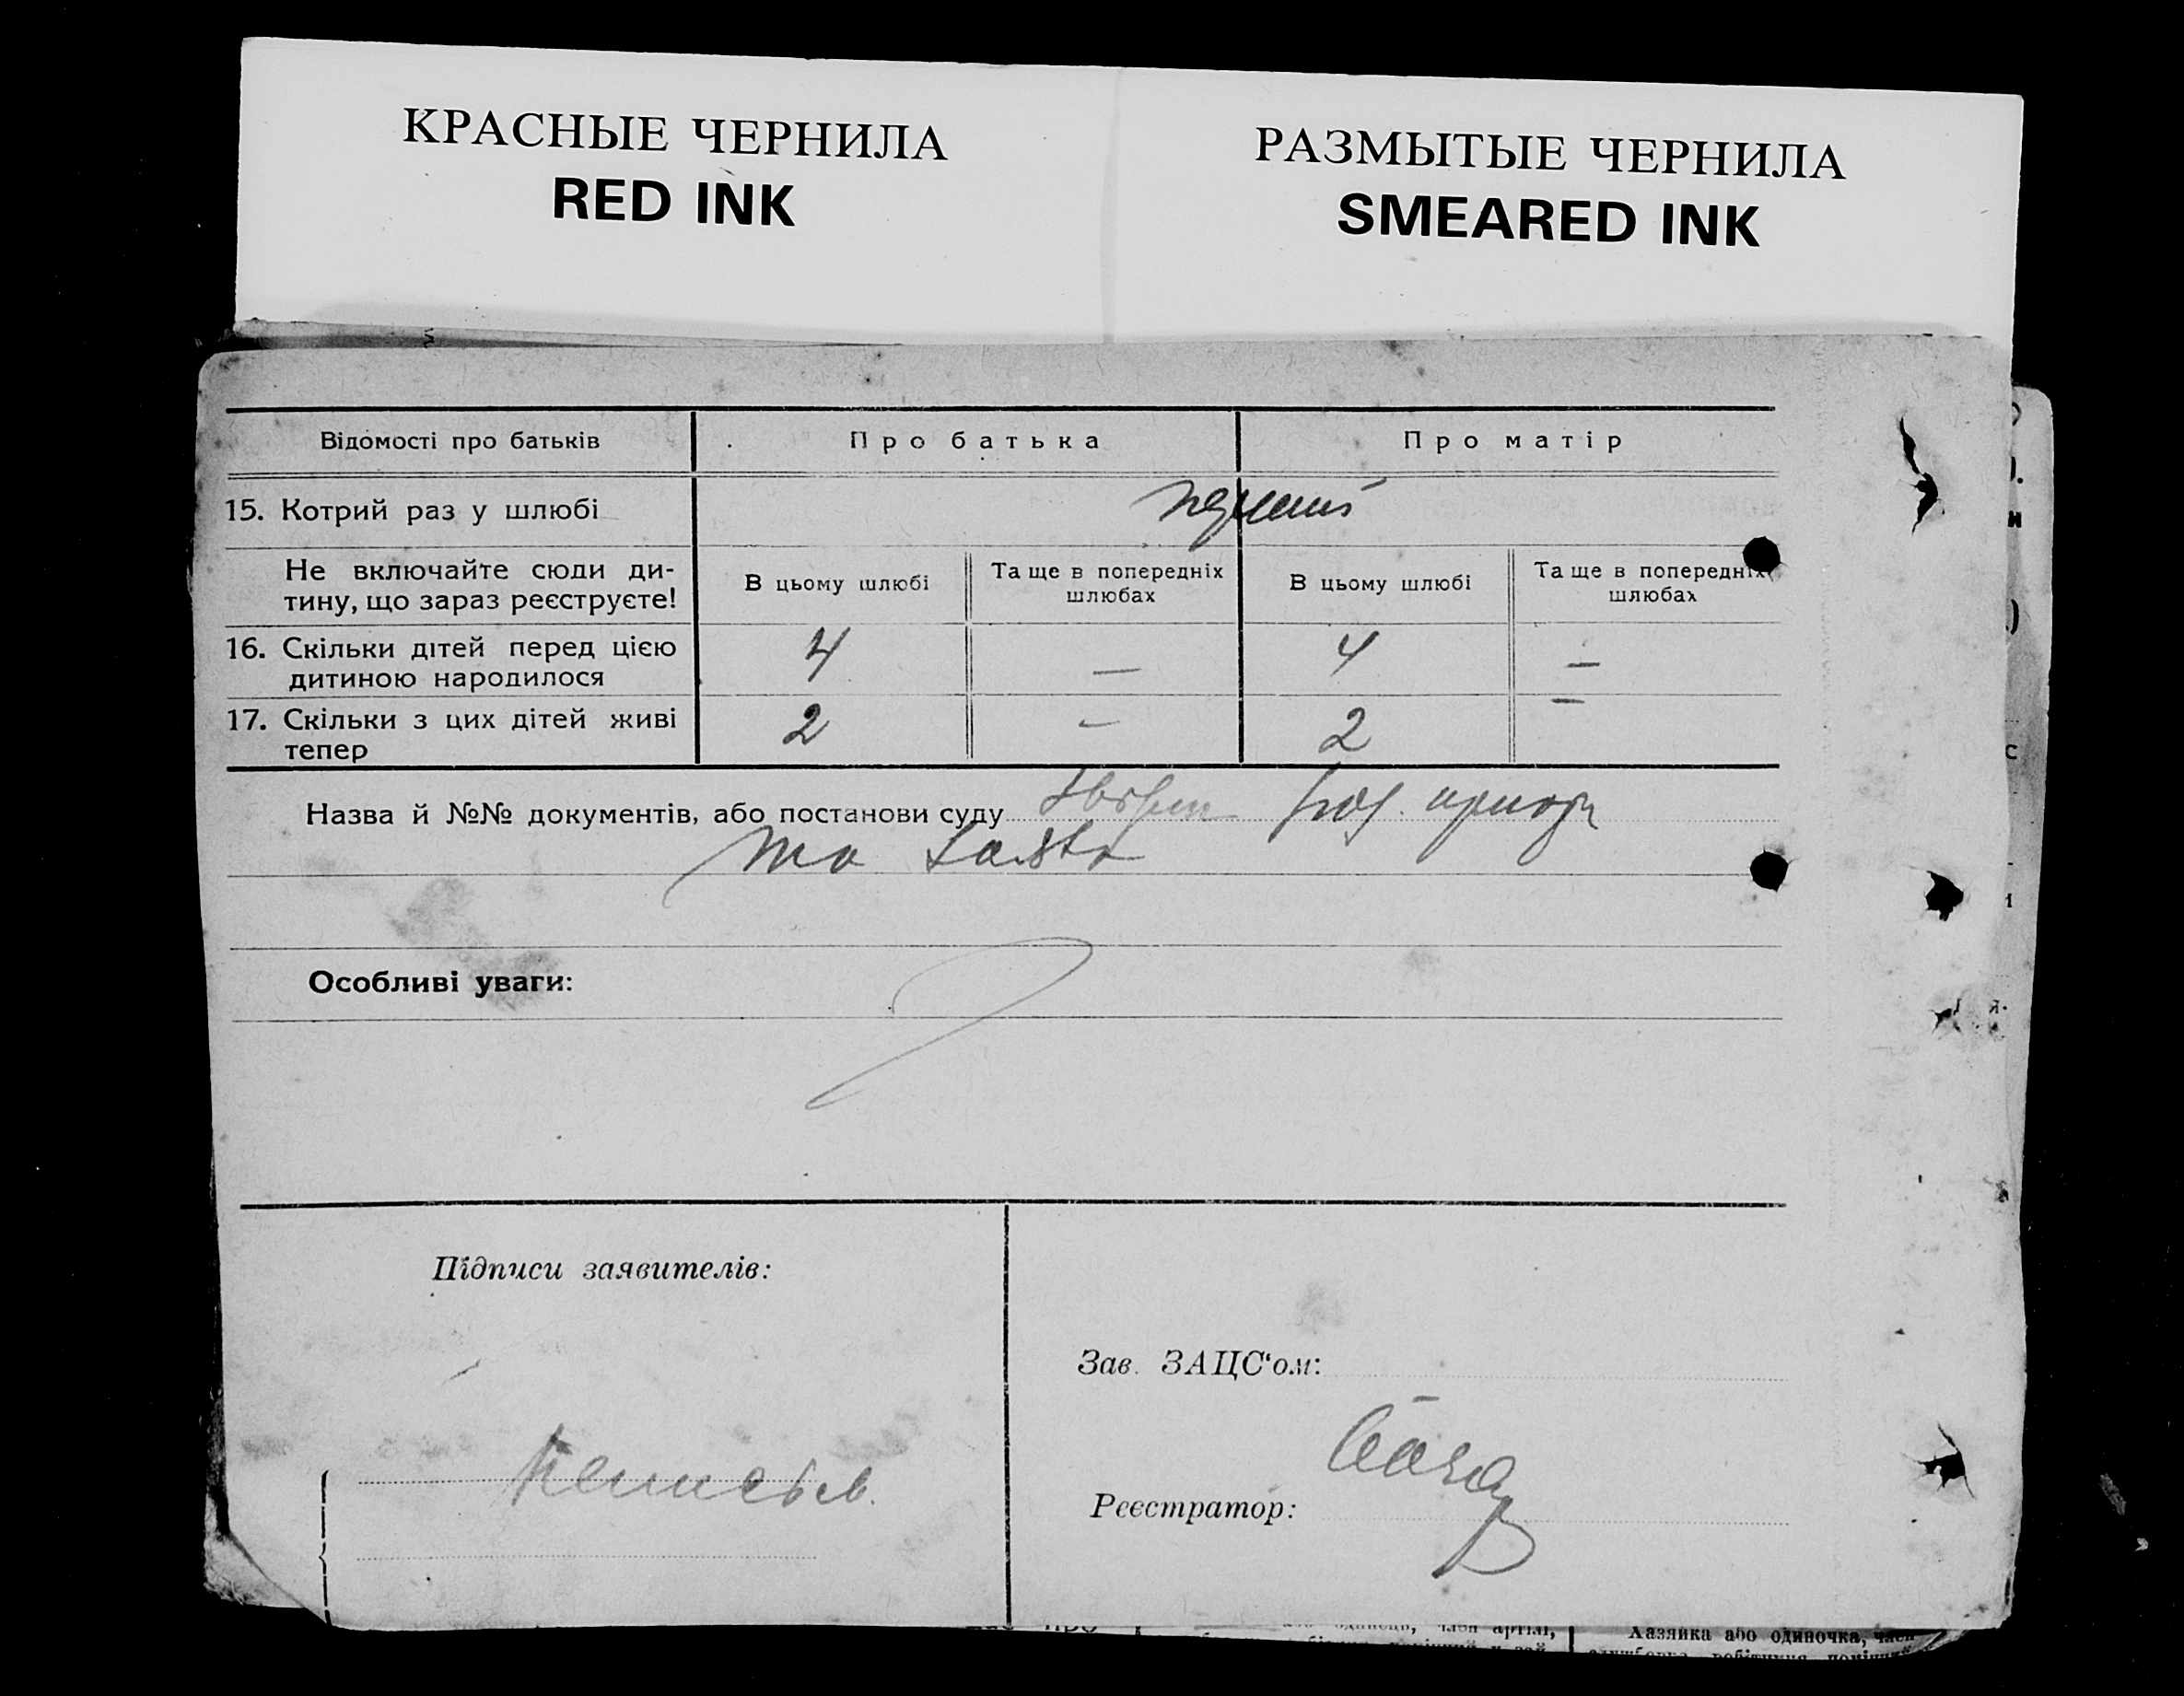 КРАСНЫЕ ЧЕРНИЛА
RED INK
РАЗМЫТЫЕ ЧЕРНИЛА
SMEARED INK
Відомості про батьків
Про батька
Про матір
15. Котрий раз у шлюбі
Не включайте сюди ди-
тину, що зараз реєструєте!
В цьому шлюбі
Та ще в попередніх
шлюбах
В цьому шлюбі
Та ще в попередніх
шлюбах
16. Скільки дітей перед цією
дитиною народилося
4 — 4 —
17. Скільки з цих дітей живі
тепер
2 — 2 —
Назва й №№ документів, або постанови суду
та
Особливі уваги:
Підписи заявителів:
Зав. ЗАЦС‘ом:
Реєстратор:
Хазяйка або одиночка,